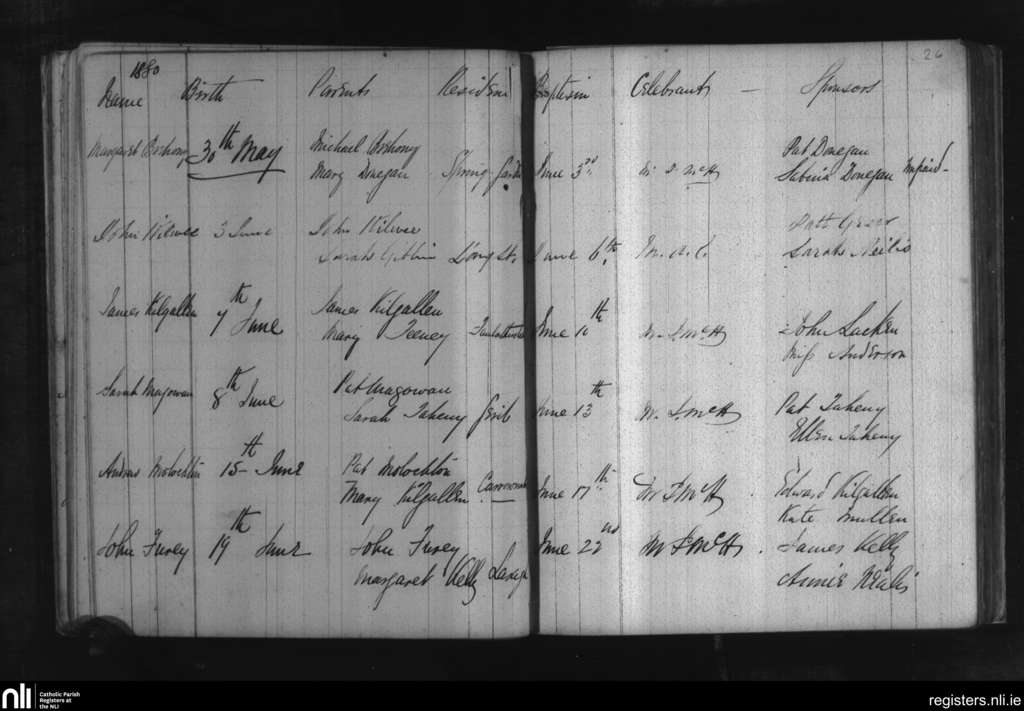 1880
26
Name Birth Parents Resident Baptism Celebrants — Sponsors
Margaret 30th May Michael
Mary Donegan Spring June 3rd M. J. McH
Pat Donegan
Sabina Donegan
John Kilvee 3 June John Kilvee
Sarah Long St. June 6th
Patt Greer
Sarah Neilis
James Kilgallen 7th June James Kilgallen
Mary Feeney June 10th M. J. McH
John Lacken
Miss Anderson
Sarah Magowan 8th June Pat Magowan
Sarah Taheny June 13th M. J. McH
Pat Taheny
Ellen Taheny
Andrew Molockton 15th June Pat Molockton
Mary Kilgallen June 17th M J McH
Edward Kilgallen
Kate Mullen
John Furey 19th June John Furey
Margaret Kelly June 22nd M J McH
James Kelly
Annie Nealis
nli Catholic Parish
Registers at
the NLI
registers.nli.ie